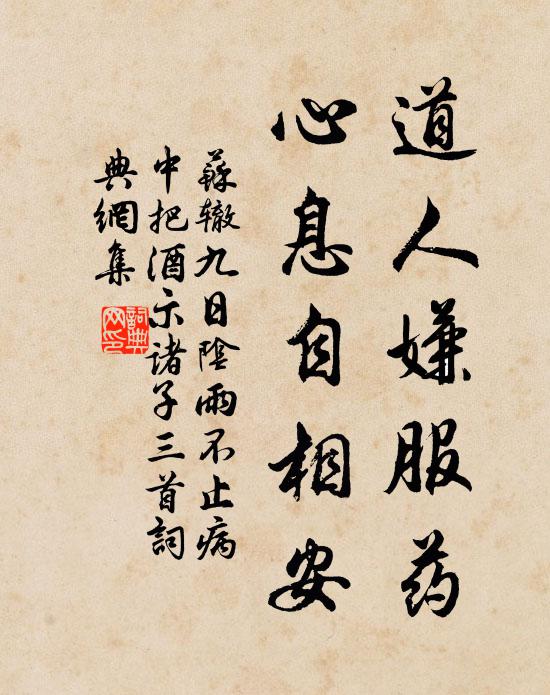 道人嫌服药
心息自相安
蘇辙九日陰雨不止病
中把酒示諸子三首詞
典網集
詞典
网印